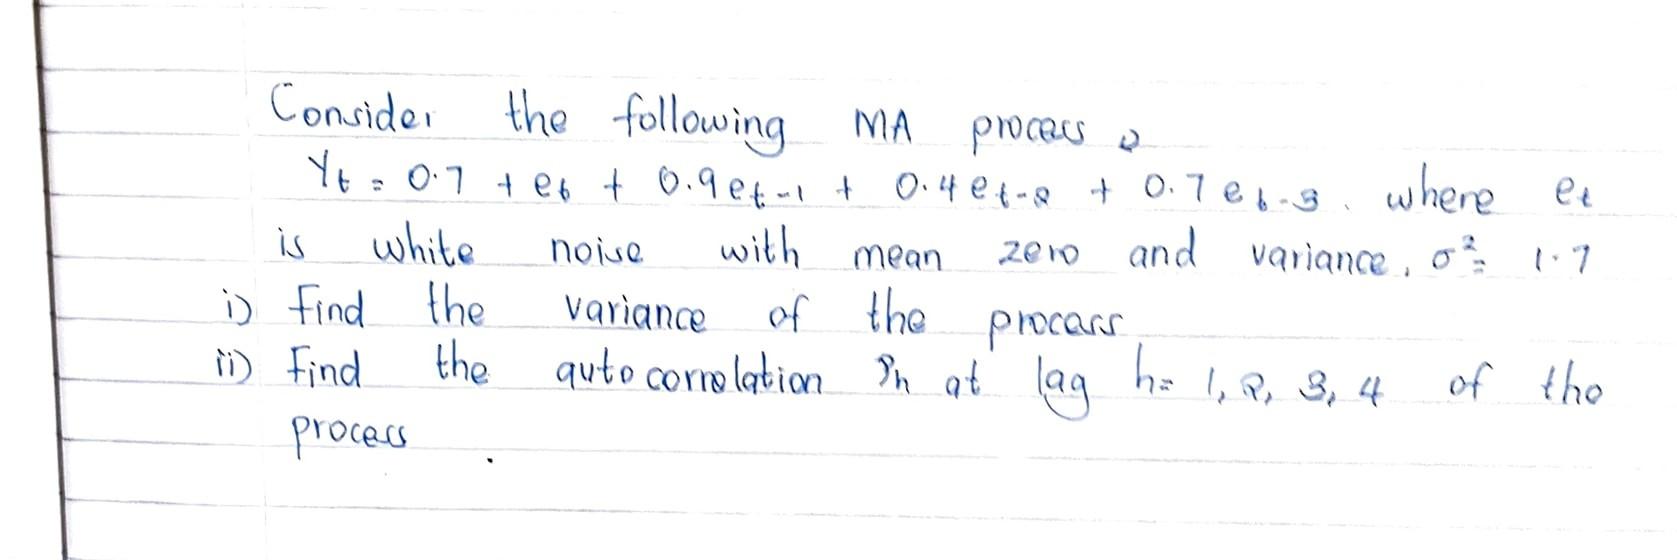 Consider the following MA process,
Yt = 0.7 + et + 0.9et-1 + 0.4et-2 + 0.7et-3. where et
is white noise with mean zero and variance, σ² = 1.7
i) Find the variance of the process
ii) Find the autocorrelation ρh at lag h= 1, 2, 3, 4 of the
process.